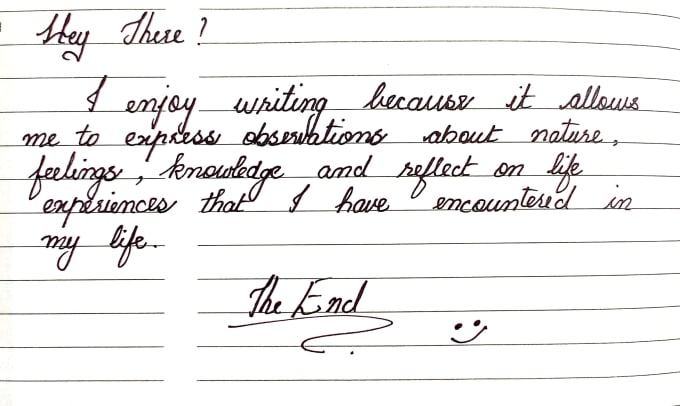 Hey There?
I enjoy writing because it allows
me to express observations about nature,
feelings, knowledge and reflect on life
experiences that I have encountered in
my life.
The End